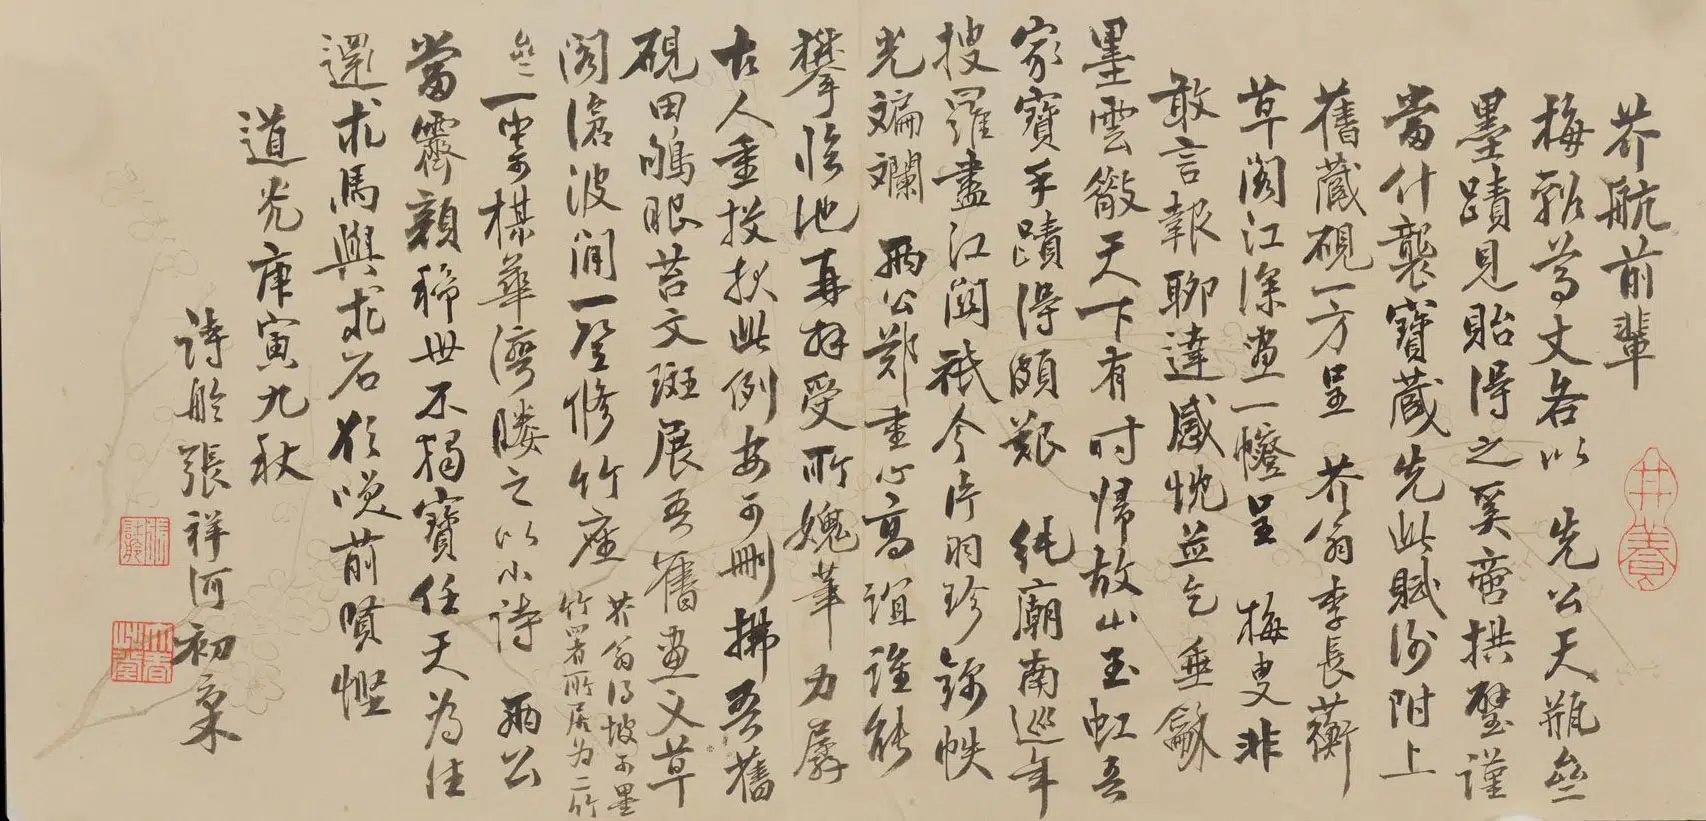 芥航前輩
梅郯蒡丈各以 先公天瓶齋
墨蹟見貽得之奚啻拱璧謹
當什襲寶藏先此賦謝附上
舊藏硯一方呈 芥翁李長蘅
草閣江深畫一幢呈 梅叟非
敢言報聊達感忱並乞垂龢
墨雲散天下有時歸故山玉虹吾
家寶手蹟得頗艱 純廟南巡年
搜羅盡江關祇今片羽珍錦帙
光斒斕 兩公鄭重心高誼誰能
攀臨池再拜受所媿筆力孱
古人重投
此例安可刪擄吾舊
硯田鴝眼苔文斑展吾舊畫叉草
閣滄波間一登修竹座
芥翁得坡可墨
竹署所居為二竹
齋一
棋華
之以小詩 兩公
當霽顏稀世不獨寶任天為住
還求馬與求石
前賢慳
道光庚寅九秋
詩舲張祥河初稾